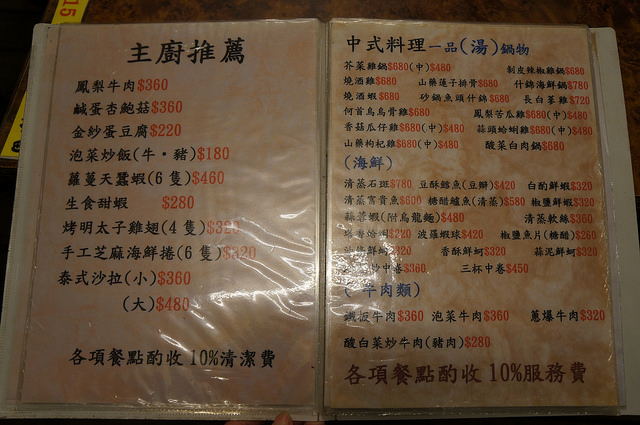 15
主廚推薦
鳳梨牛肉$360
鹹蛋杏鮑菇$360
金鈔蛋豆腐$220
泡菜炒飯(牛・豬)$180
蘿蔓天蠶蝦(6隻)$460
生食甜蝦 $280
烤明太子雞翅(4隻)$320
手工芝麻海鮮捲(6隻)$320
泰式沙拉(小)$360
(大)$480
各項餐點酌收10%清潔費
中式料理一品(湯)鍋物
芥菜雞鍋$680(中)$480 剝皮辣椒雞鍋$680
燒酒雞$680 山藥蓮子排骨$680 什錦海鮮鍋$780
燒酒蝦$680 砂鍋魚頭什錦$680 長白蔘雞$720
何首烏烏骨雞$680 鳳梨苦瓜雞$680(中)$480
香菇瓜仔雞$680(中)$480 蒜頭蛤蜊雞$680(中)$480
山藥枸杞雞$680(中)$480 酸菜白肉鍋$680
(海鮮)
清蒸石斑$780 豆酥鱈魚(豆瓣)$420 白酌鮮蝦$320
清蒸富貴魚$600 糖醋鱸魚(清蒸)$580 椒鹽鮮蝦$320
蒜蓉蝦(附烏龍麵)$480 清蒸軟絲$360
蛤蜊$220 波羅蝦球$420 椒鹽魚片(糖醋)$260
鮮蚵$320 香酥鮮蚵$320 蒜泥鮮蚵$320
炒中卷$360 三杯中卷$450
(牛肉類)
鐵板牛肉$360 泡菜牛肉$360 蔥爆牛肉$320
酸白菜炒牛肉(豬肉)$280
各項餐點酌收10%服務費